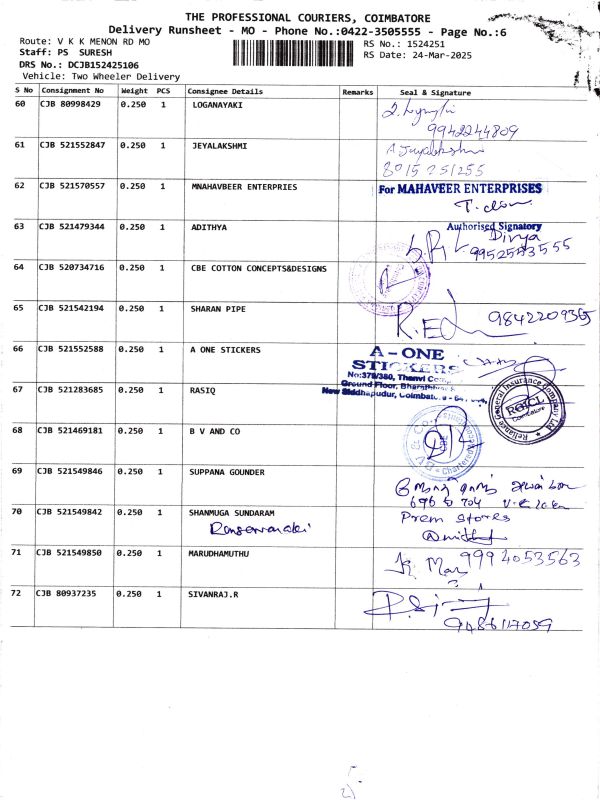 THE PROFESSIONAL COURIERS, COIMBATORE
Delivery Runsheet - MO - Phone No.:0422-3505555 - Page No.:6
Route: V K K MENON RD MO
RS No.: 1524251
Staff: PS SURESH
RS Date: 24-Mar-2025
DRS No.: DCJB152425106
Vehicle: Two Wheeler Delivery
S No Consignment No Weight PCS Consignee Details Remarks Seal & Signature
60 CJB 80998429 0.250 1 LOGANAYAKI
9942244809
61 CJB 521552847 0.250 1 JEYALAKSHMI A Jeyalakshmi
8015251255
62 CJB 521570557 0.250 1 MNAHAVBEER ENTERPRIES For MAHAVEER ENTERPRISES
Authorised Signatory
63 CJB 521479344 0.250 1 ADITHYA Divya
64 CJB 520734716 0.250 1 CBE COTTON CONCEPTS&DESIGNS
65 CJB 521542194 0.250 1 SHARAN PIPE 9842209365
66 CJB 521552588 0.250 1 A ONE STICKERS A - ONE
STICKERS
No:379/380, Thanvi
Ground Floor,
New Siddhapudur,
67 CJB 521283685 0.250 1 RASIQ Reliance General Insurance Company Ltd
RGICL
Coimbatore
68 CJB 521469181 0.250 1 B V AND CO BV & Co
CBE
Chartered
69 CJB 521549846 0.250 1 SUPPANA GOUNDER
70 CJB 521549842 0.250 1 SHANMUGA SUNDARAM Prem stores
71 CJB 521549850 0.250 1 MARUDHAMUTHU 9994053563
72 CJB 80937235 0.250 1 SIVANRAJ.R
9486117059